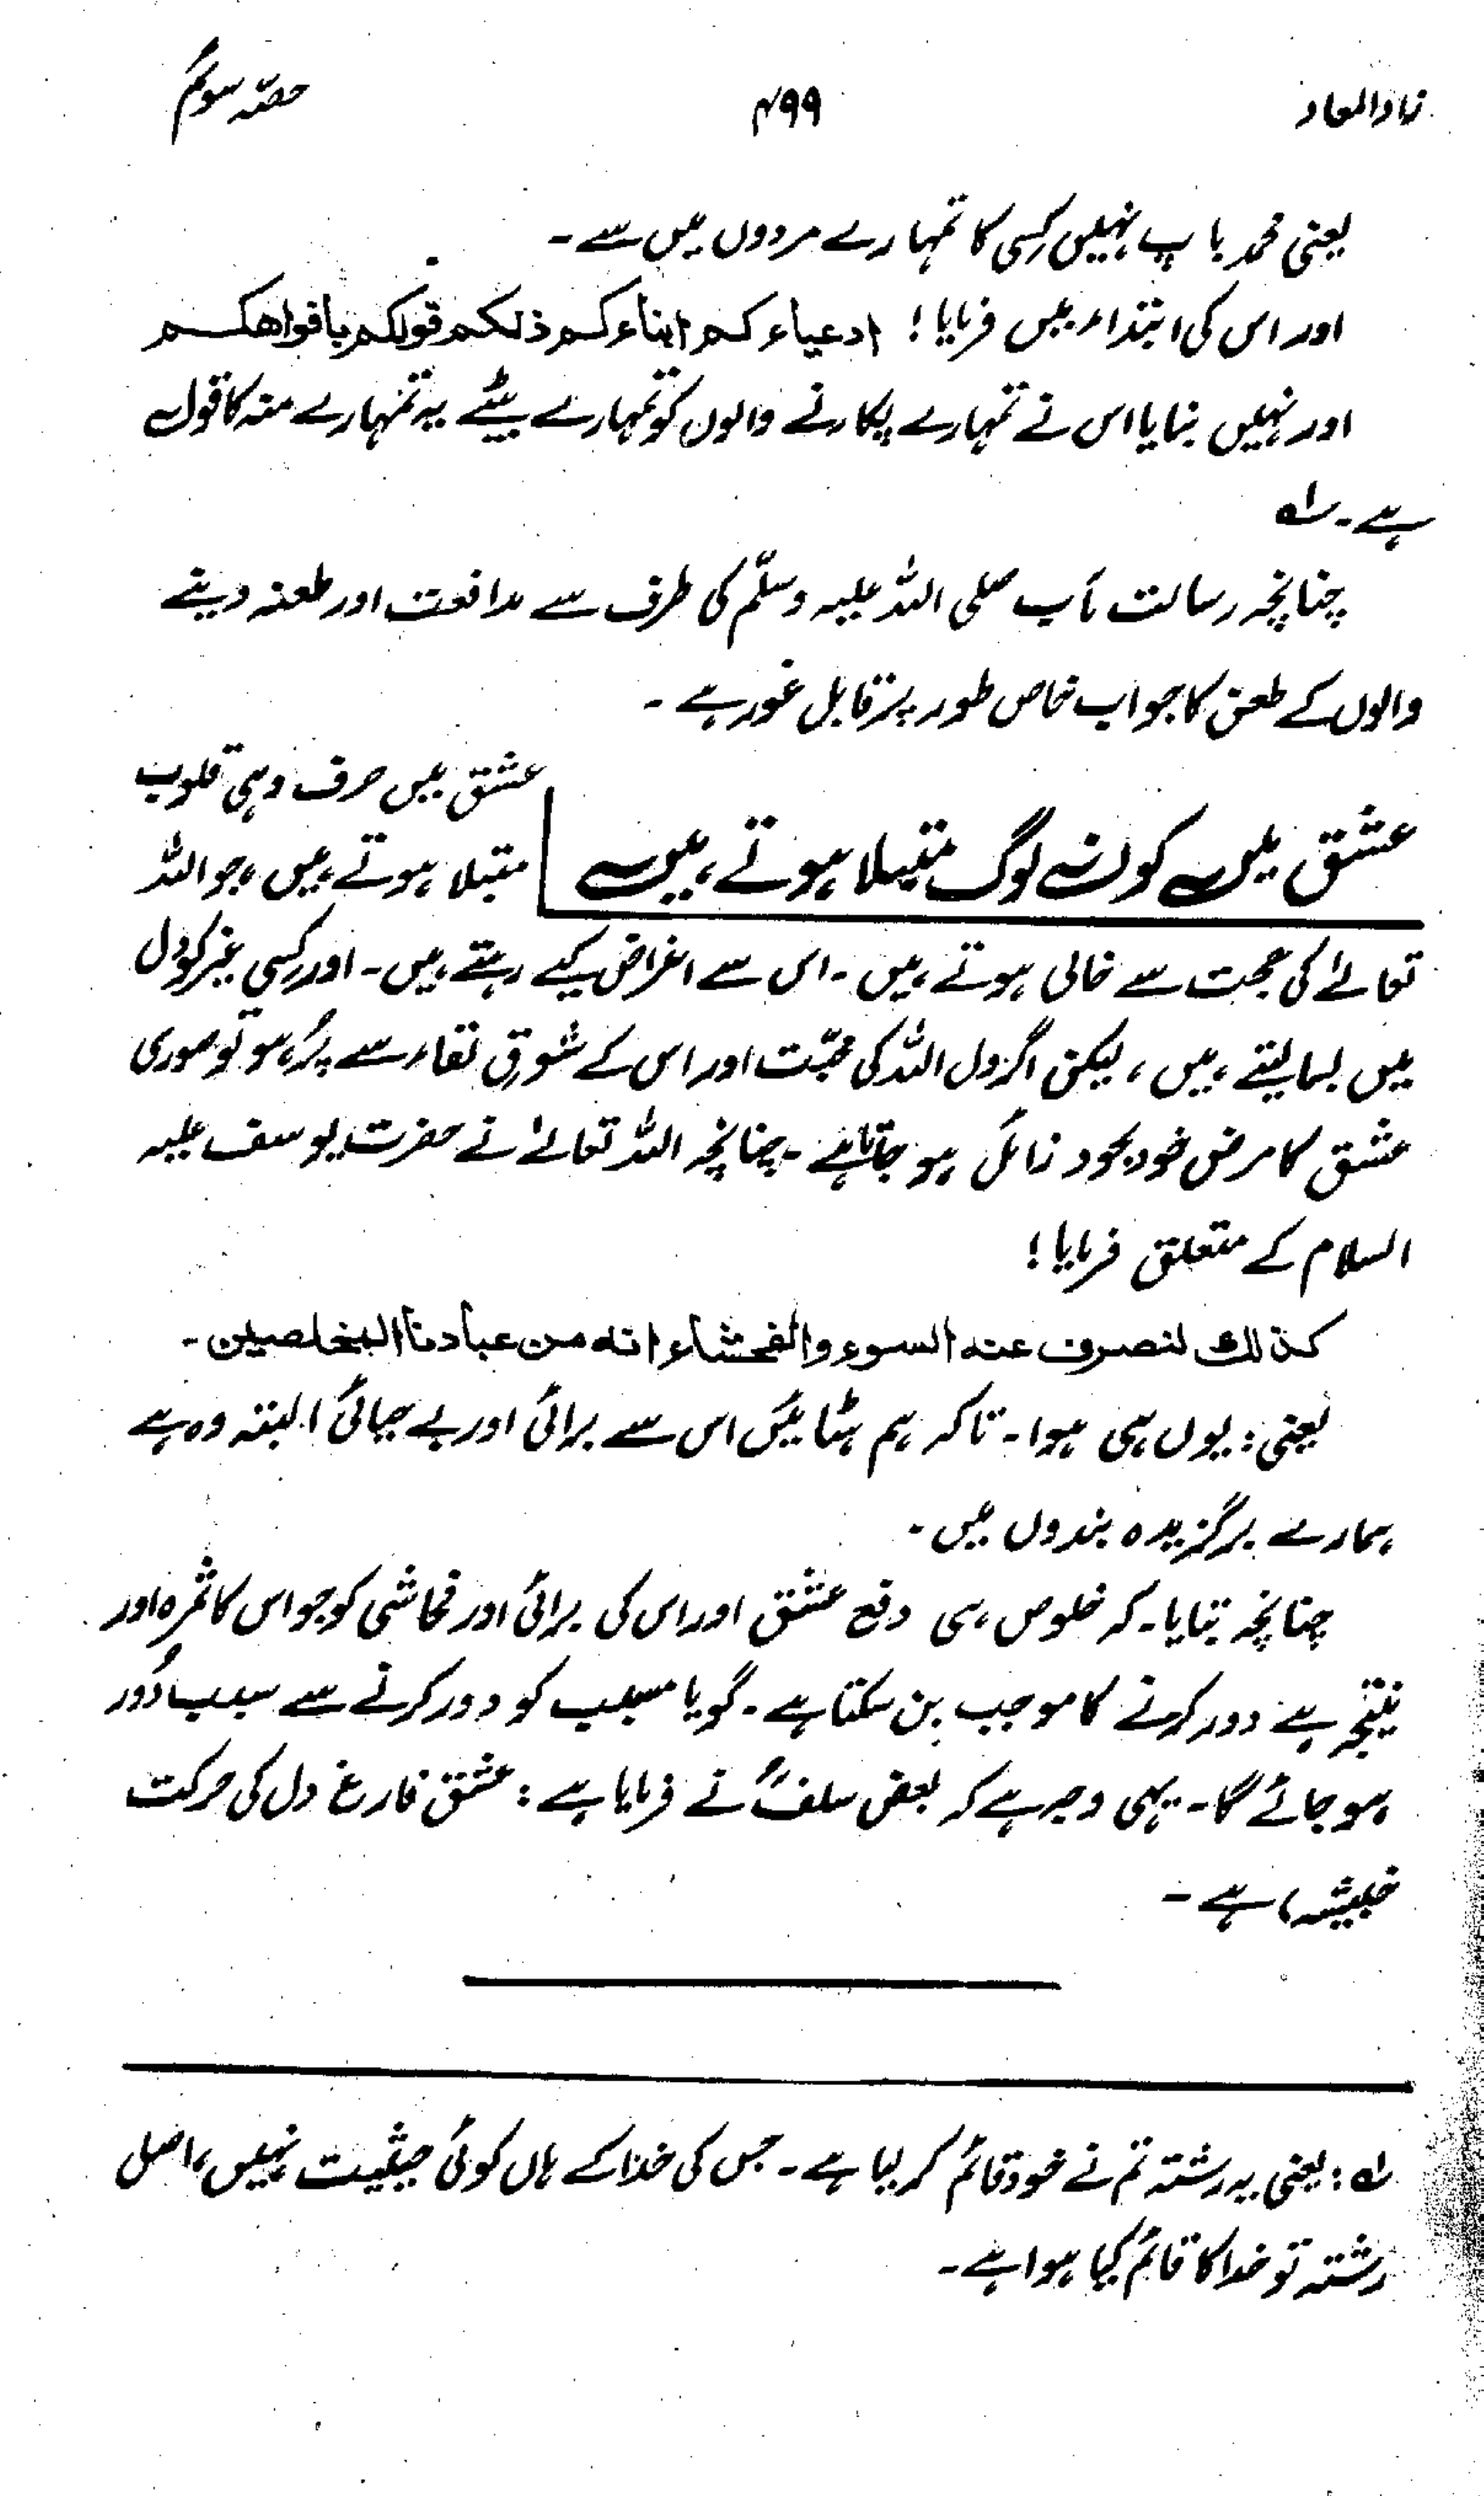 زاد المعاد
۴۹۹
حصّہ سوئم
یعنی محمد باپ نہیں کسی کا تمہارے مردوں میں سے۔
اور اس کی ابتداء میں فرمایا! ادعیاءکم ابناءکم ذلکم قولکم بافواهکم
اور نہیں بنایا اس نے تمہارے پکارنے والوں کو تمہارے بیٹے یہ تمہارے منہ کا قول
ہے۔ ؎۱
چنانچہ رسالت مآب صلی اللہ علیہ وسلّم کی طرف سے مدافعت اور طعنہ دینے
والوں کے طعن کا جواب خاص طور پر قابل غور ہے۔
عشق میں کون لوگ مبتلا ہوتے ہیں
عشق میں صرف وہی قلوب
مبتلا ہوتے ہیں، جو اللہ
تعالےٰ کی محبت سے خالی ہوتے ہیں۔ اس سے اعراض کیے رہتے ہیں۔ اور کسی غیر کو دل
میں بسا لیتے ہیں، لیکن اگر دل اللہ کی محبّت اور اس کے شوقِ لقاء سے پُر ہو تو صوری
عشق کا مرض خود بخود زائل ہو جاتا ہے۔ چنانچہ اللہ تعالےٰ نے حضرت یوسف علیہ
السلام کے متعلق فرمایا!
کذالك لنصرف عنه السوء والفحشاء انه من عبادنا المخلصین۔
یعنی: یوں ہی ہوا۔ تاکہ ہم ہٹائیں اس سے برائی اور بے حیائی البتہ وہ ہے
ہمارے برگزیدہ بندوں میں۔
چنانچہ بتایا۔ کہ خلوص ہی دفع عشق اور اس کی برائی اور فحاشی کو جو اس کا ثمرہ اور
نتیجہ ہے دور کرنے کا موجب بن سکتا ہے۔ گویا مسبب کو دور کرنے سے سبب دُور
ہو جائے گا۔ یہی وجہ ہے کہ بعض سلفؒ نے فرمایا ہے: عشق فارغ دل کی حرکت
ہے۔
؎۱: یعنی یہ رشتہ تم نے خود قائم کر لیا ہے۔ جس کی خدا کے ہاں کوئی حیثیت نہیں، اصل
رشتہ تو خدا کا قائم کیا ہوا ہے۔